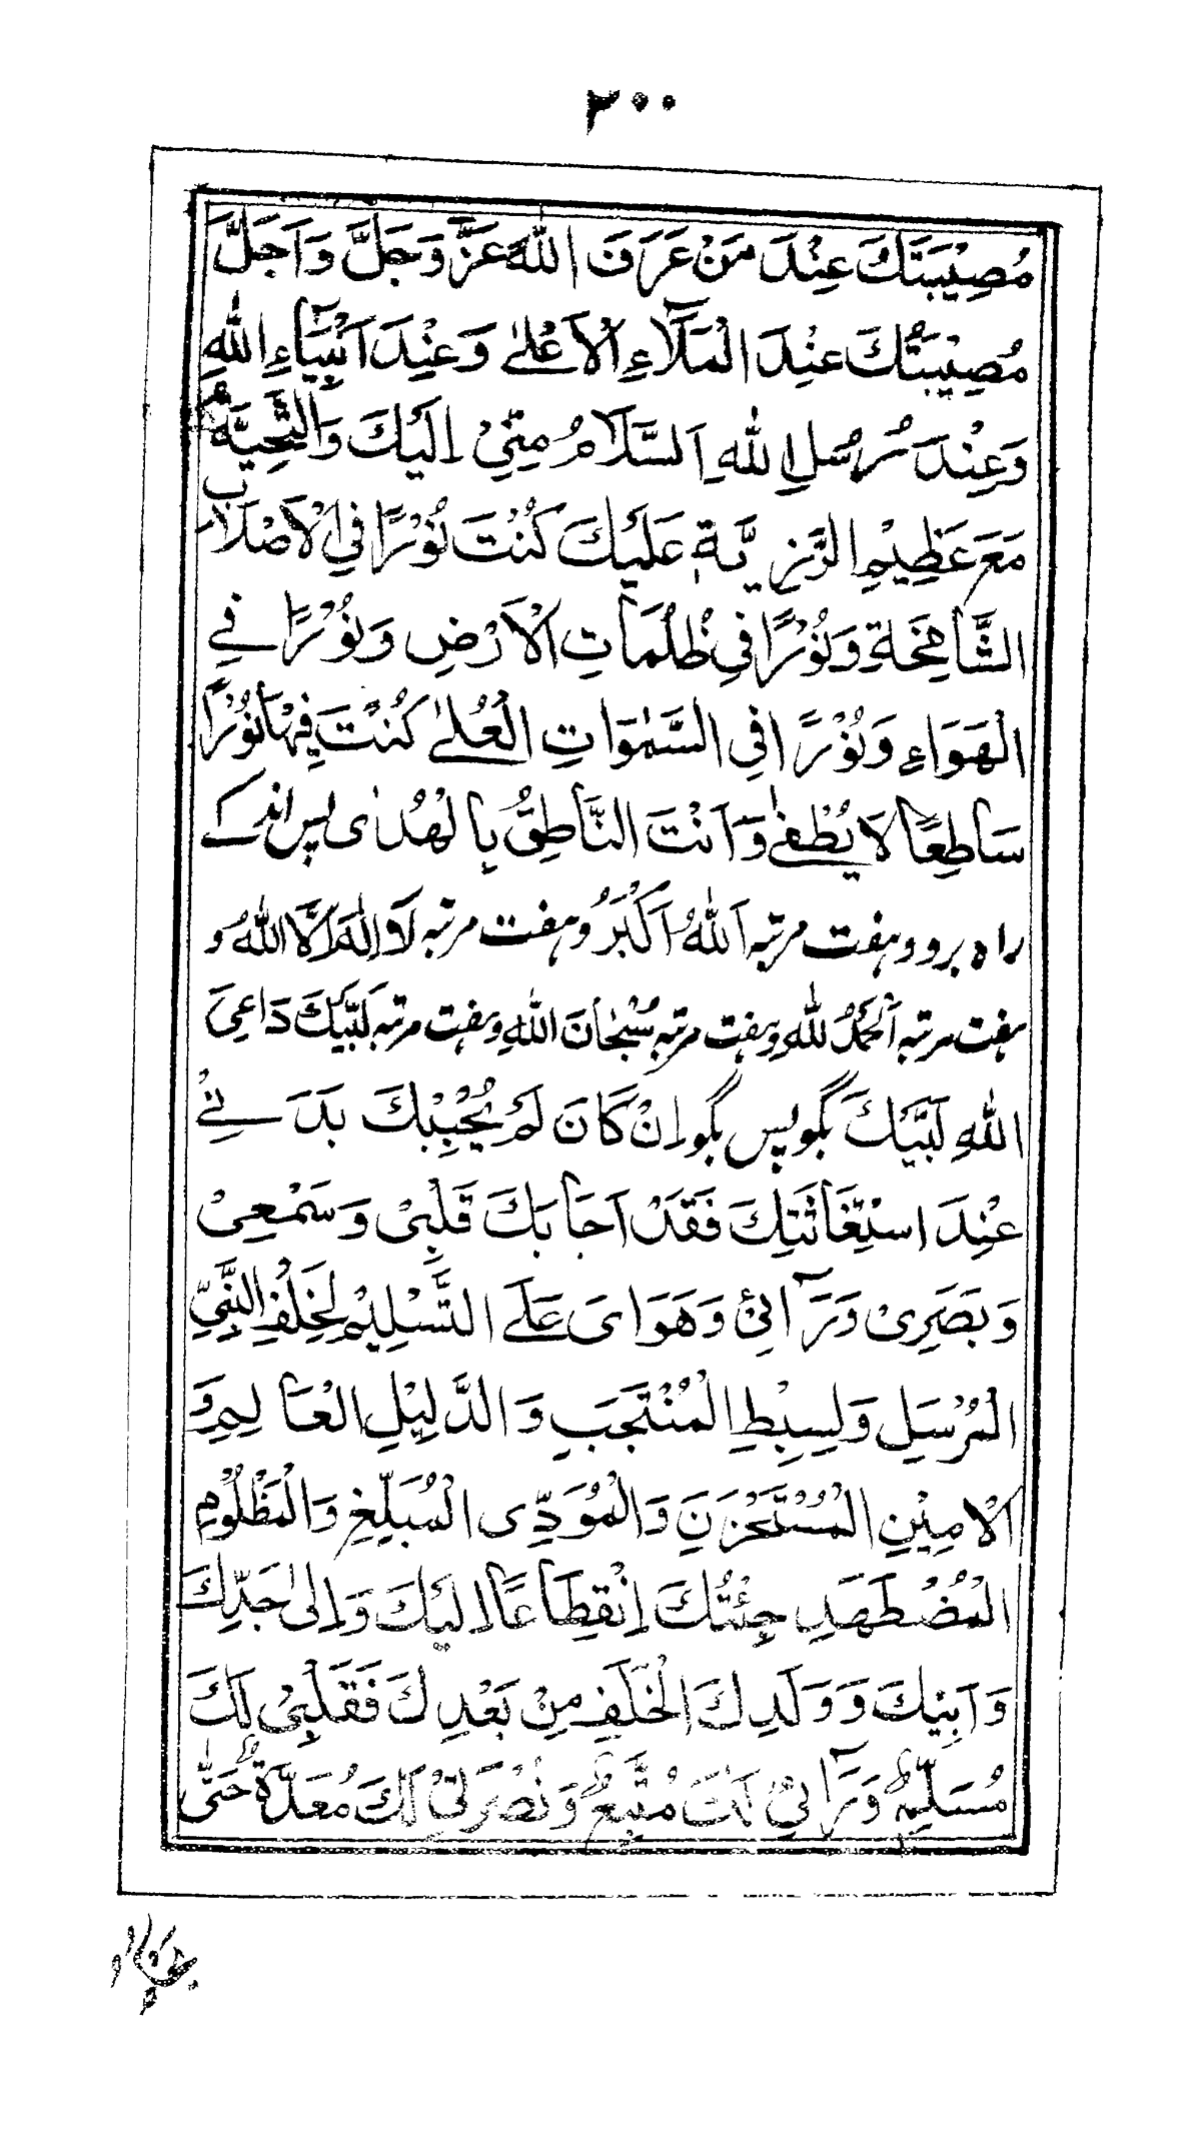 ۲۰۰
مُصِيْبَتَكَ عِنْدَ مَنْ عَرَفَ اللّٰهَ عَزَّ وَجَلَّ وَاَجَلَّ
مُصِيْبَتَكَ عِنْدَ الْمَلَاۤءِ الْاَعْلٰى وَعِنْدَ اَنْبِيَاۤءِ اللّٰهِ
وَعِنْدَ رُسُلِ اللّٰهِ اَلسَّلَامُ مِنِّيْ اِلَيْكَ وَالتَّحِيَّةُ
مَعَ عَظِيْمِ الرَّزِيَّةِ عَلَيْكَ كُنْتَ نُوْرًا فِي الْاَصْلَابِ
الشَّامِخَةِ وَنُوْرًا فِيْ ظُلُمَاتِ الْاَرْضِ وَنُوْرًا فِي
الْهَوَاءِ وَنُوْرًا فِي السَّمٰوَاتِ الْعُلٰى كُنْتَ فِيْهَا نُوْرًا
سَاطِعًا لَا يُطْفٰى وَاَنْتَ النَّاطِقُ بِالْهُدٰى پس اندکے
راہ برو و ہفت مرتبہ اَللّٰهُ اَكْبَرُ و ہفت مرتبہ لَا اِلٰهَ اِلَّا اللّٰهُ و
ہفت مرتبہ اَلْحَمْدُ لِلّٰهِ و ہفت مرتبہ سُبْحَانَ اللّٰهِ و ہفت مرتبہ لَبَّيْكَ دَاعِيَ
اللّٰهِ لَبَّيْكَ بگو پس بگو اِنْ كَانَ لَمْ يُجِبْكَ بَدَنِيْ
عِنْدَ اسْتِغَاثَتِكَ فَقَدْ اَجَابَكَ قَلْبِيْ وَسَمْعِيْ
وَبَصَرِيْ وَرَاۤئِيْ وَهَوَايَ عَلَى التَّسْلِيْمِ لِخَلَفِ النَّبِيِّ
الْمُرْسَلِ وَلِسِبْطِ الْمُنْتَجَبِ وَالدَّلِيْلِ الْعَالِمِ وَ
الْاَمِيْنِ الْمُسْتَخْزَنِ وَالْمُؤَدِّي الْمُبَلِّغِ وَالْمَظْلُوْمِ
الْمُضْطَهَدِ جِئْتُكَ اِنْقِطَاعًا اِلَيْكَ وَاِلٰى جَدِّكَ
وَاَبِيْكَ وَوَلَدِكَ الْخَلَفِ مِنْ بَعْدِكَ فَقَلْبِيْ لَكَ
مُسَلِّمٌ وَرَاۤئِيْ لَكَ مُتَّبِعٌ وَنُصْرَتِيْ لَكَ مُعَدَّةٌ حَتّٰى